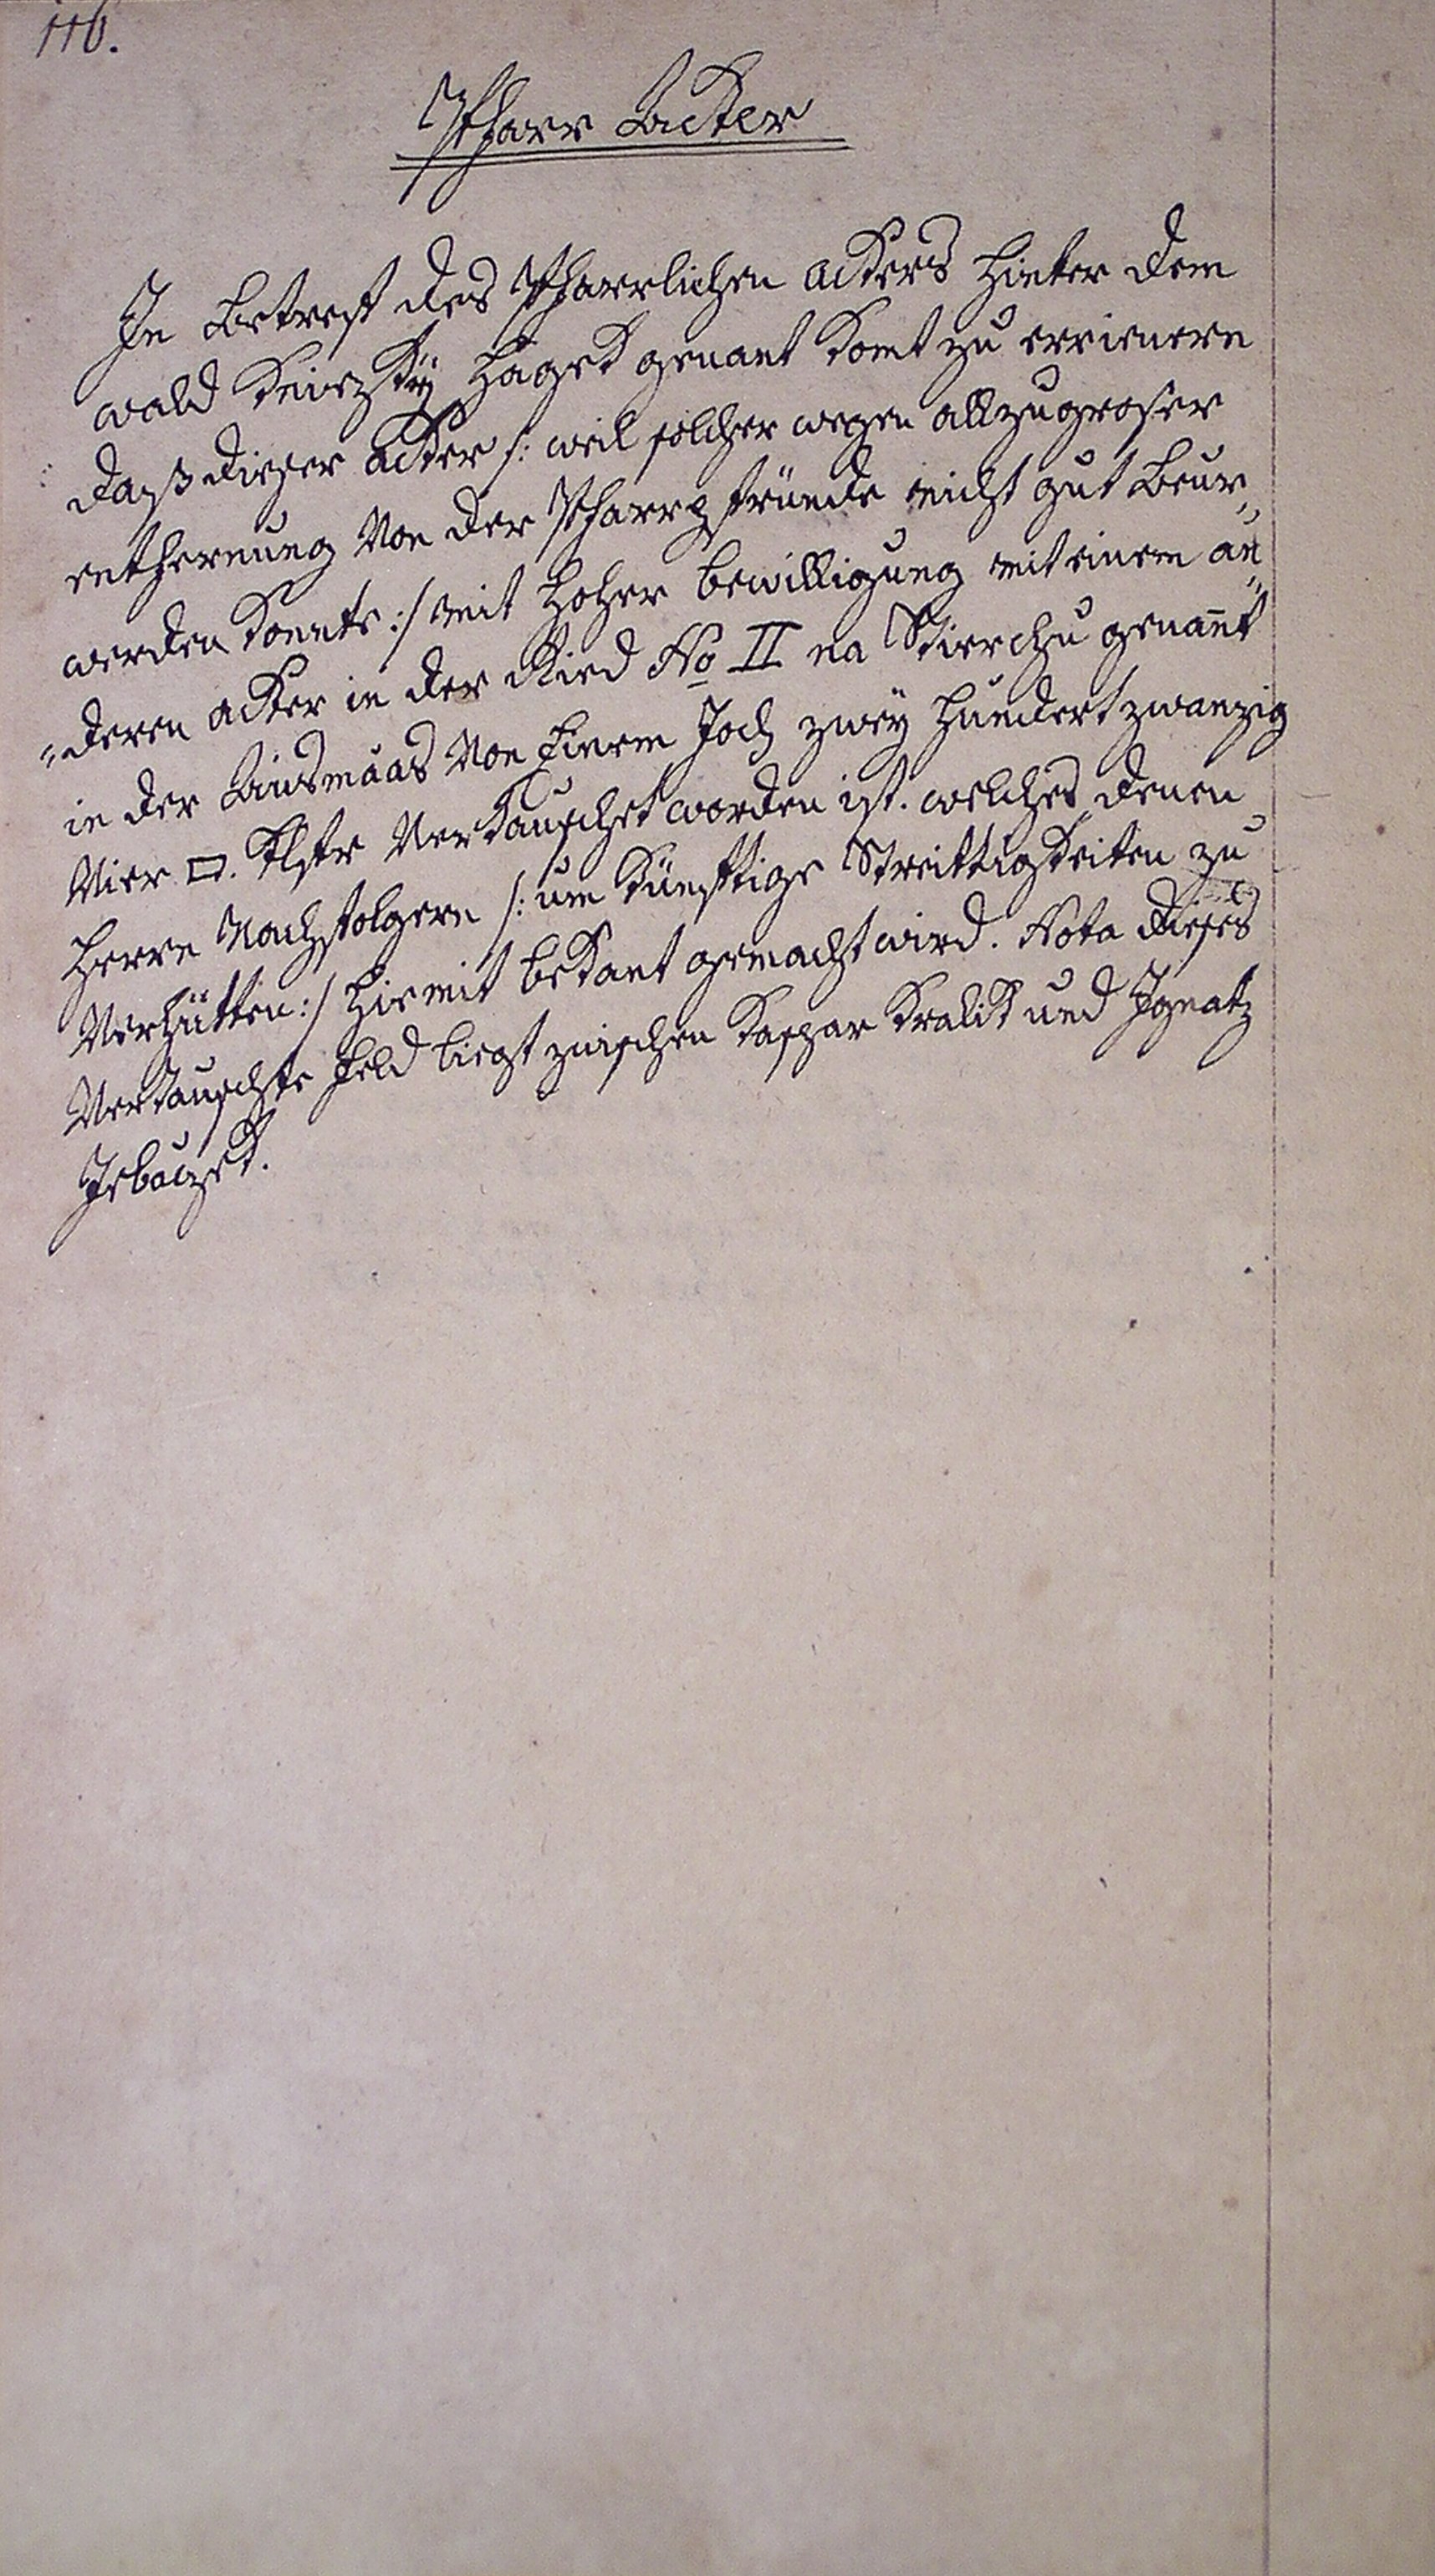 116.
Pfarr Acker
In Betref des Pfarrlichen ackers hinter dem
wald genant komt zu errinnern
daß dieser acker /: weil solcher wegen allzugroser
entfernung von der Pfarrpfründe nicht gut
werden konnte :/ mit hoher bewilligung mit einem an„
„deren acker in der Ried No II na genant
in der Ausmaas von Einem Joch zwey hundert zwanzig
Vier □. Klftr Vertauschet worden ist. welches denen
Herrn Nachfolgern /: um künftige Streittigkeiten zu
Verhütten :/ hiemit bekant gemacht wird. Nota dieses
Vertauschte Feld liegt zwischen Kaspar Kralik und Ignatz